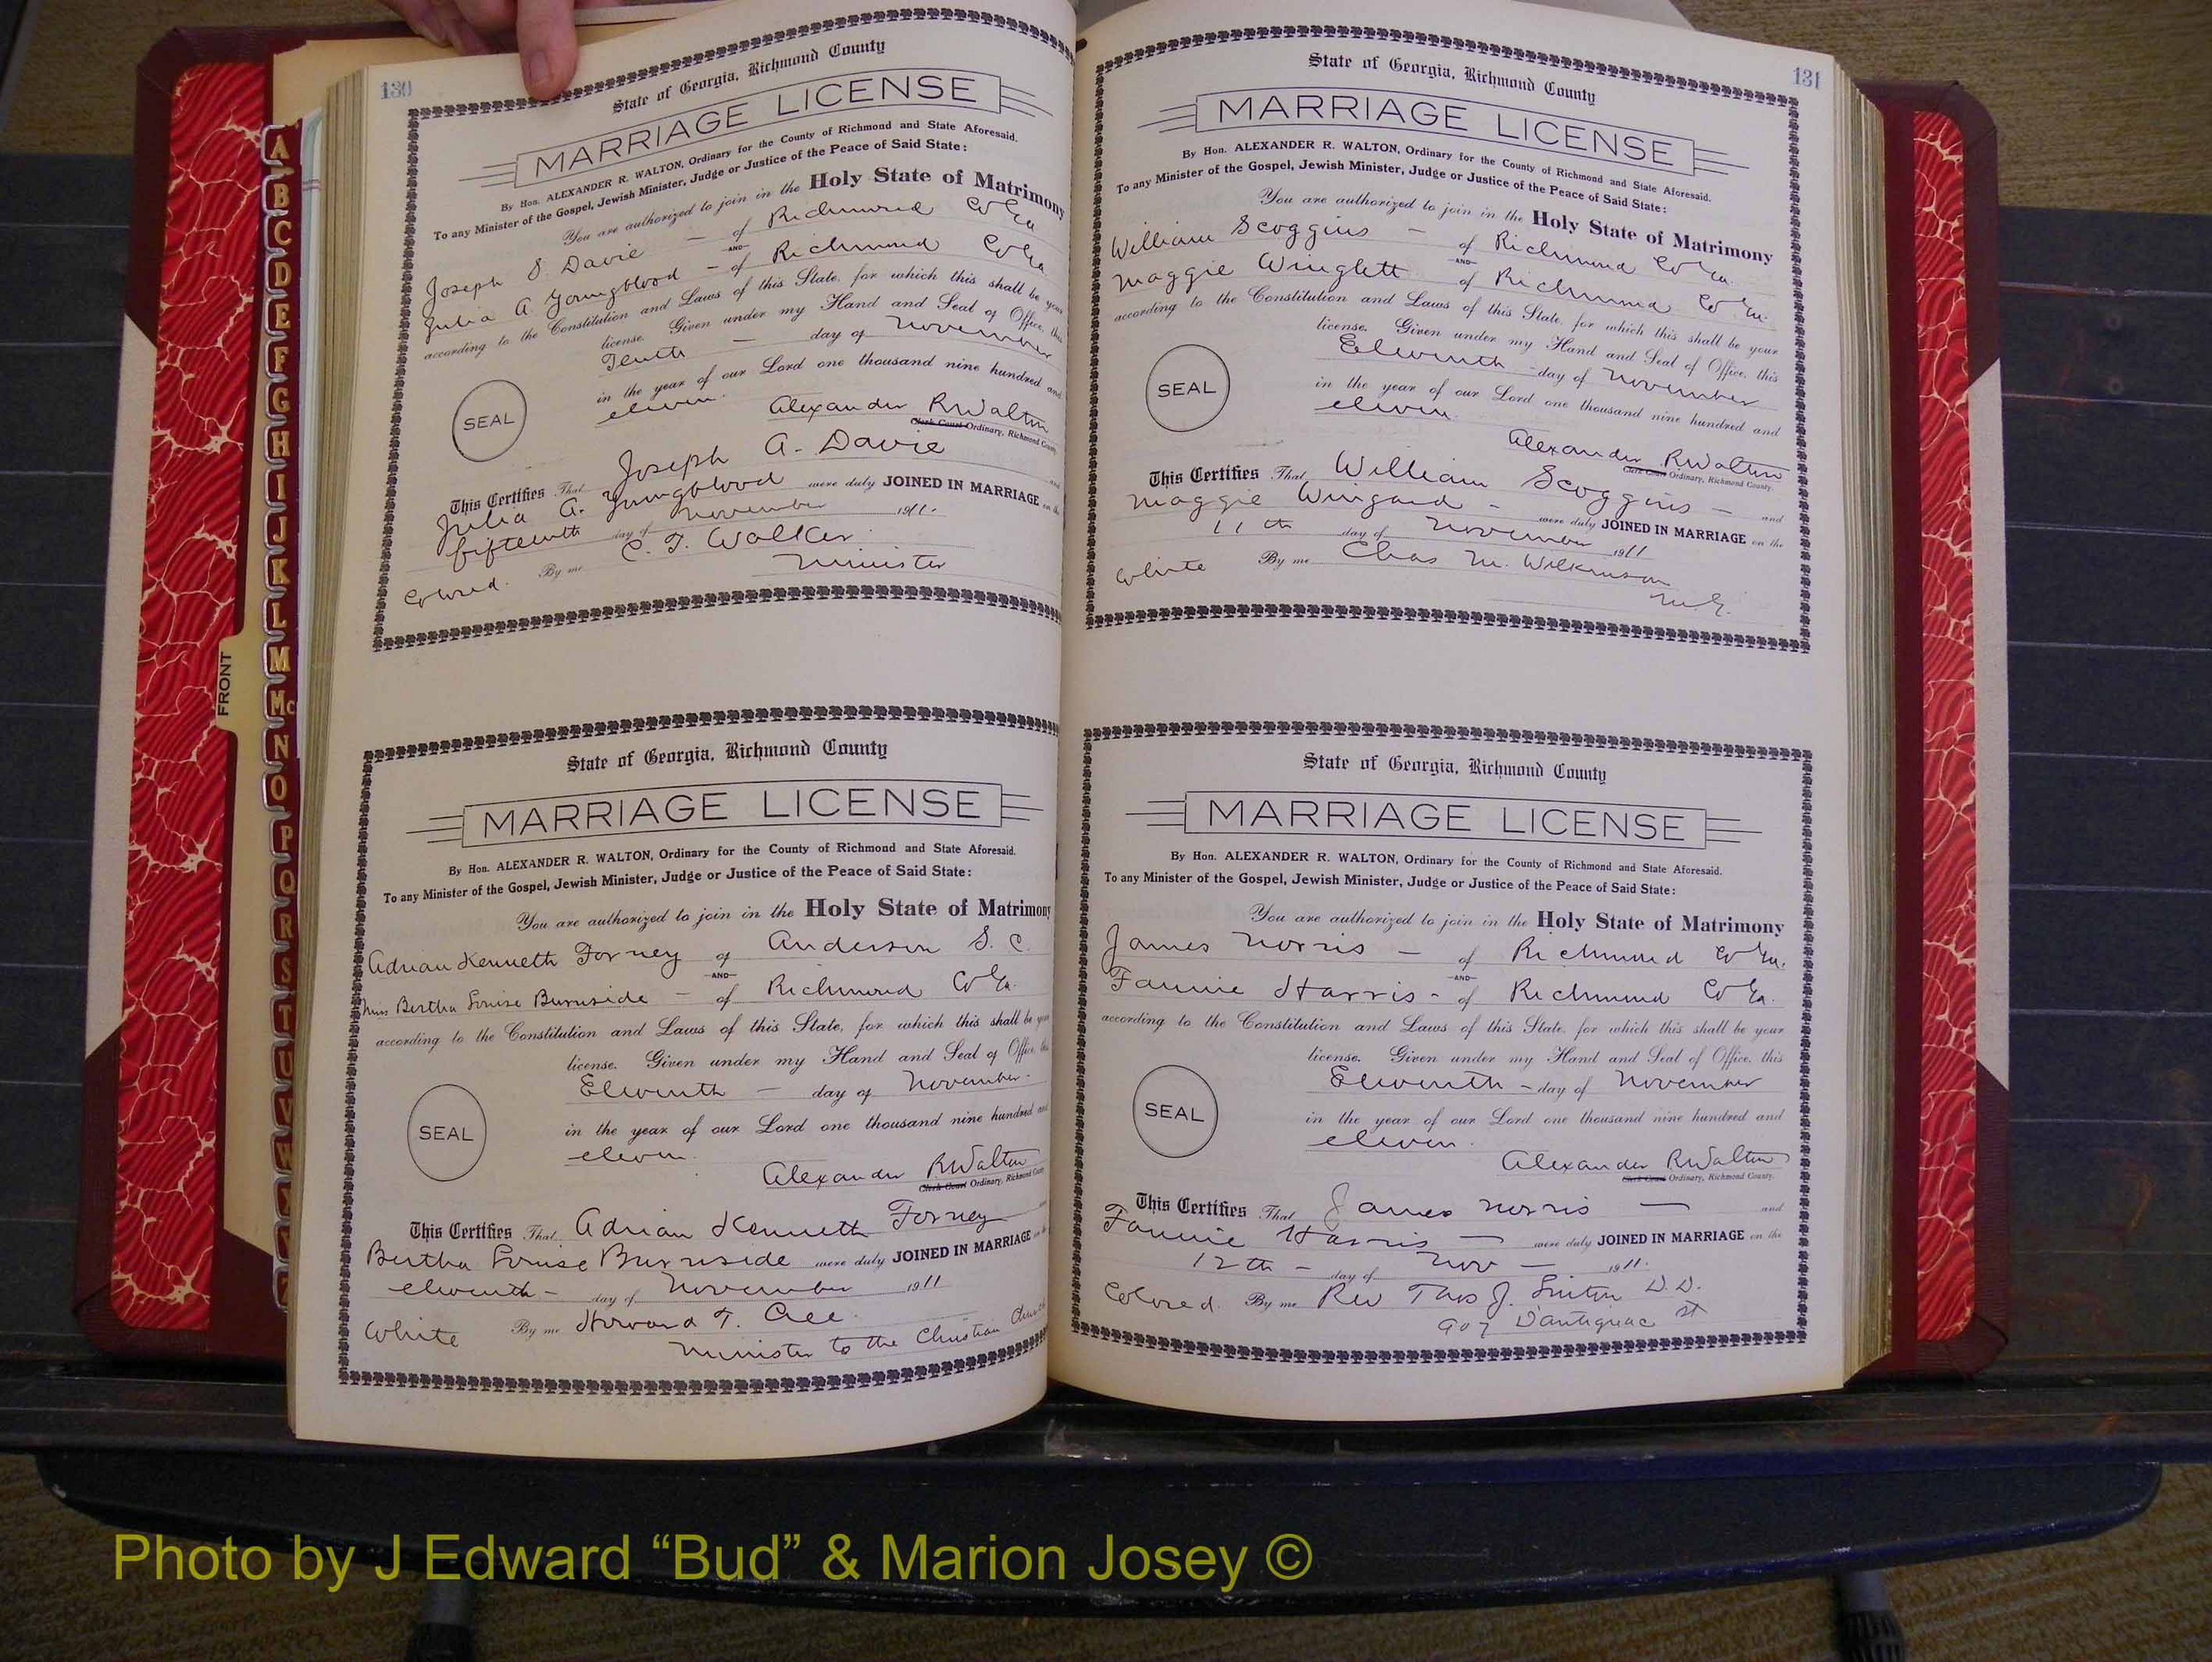 130
State of Georgia, Richmond County
MARRIAGE LICENSE
By Hon. ALEXANDER R. WALTON, Ordinary for the County of Richmond and State Aforesaid.
To any Minister of the Gospel, Jewish Minister, Judge or Justice of the Peace of Said State:
You are authorized to join in the Holy State of Matrimony
Joseph S. Davie — of Richmond Co Ga
AND
Julia A Youngblood — of Richmond Co Ga
according to the Constitution and Laws of this State, for which this shall be your
license. Given under my Hand and Seal of Office, this
Tenth — day of November
in the year of our Lord one thousand nine hundred and
eleven.
SEAL
Alexander R Walton
Clerk Court Ordinary, Richmond County
This Certifies That Joseph A. Davie and
Julia A. Youngblood were duly JOINED IN MARRIAGE on the
fifteenth day of November 1911.
Colored. By me C. T. Walker
Minister
State of Georgia, Richmond County
MARRIAGE LICENSE
By Hon. ALEXANDER R. WALTON, Ordinary for the County of Richmond and State Aforesaid.
To any Minister of the Gospel, Jewish Minister, Judge or Justice of the Peace of Said State:
You are authorized to join in the Holy State of Matrimony
Adrian Kenneth Forney of Anderson S. C.
AND
Miss Bertha Louise Burnside — of Richmond Co Ga.
according to the Constitution and Laws of this State, for which this shall be your
license. Given under my Hand and Seal of Office, this
Eleventh — day of November.
in the year of our Lord one thousand nine hundred and
eleven.
SEAL
Alexander R Walton
Clerk Court Ordinary, Richmond County
This Certifies That Adrian Kenneth Forney and
Bertha Louise Burnside were duly JOINED IN MARRIAGE on the
eleventh — day of November 1911
White By me Howard T. Cree.
Minister to the Christian Church
131
State of Georgia, Richmond County
MARRIAGE LICENSE
By Hon. ALEXANDER R. WALTON, Ordinary for the County of Richmond and State Aforesaid.
To any Minister of the Gospel, Jewish Minister, Judge or Justice of the Peace of Said State:
You are authorized to join in the Holy State of Matrimony
William Scoggins — of Richmond Co Ga.
AND
Maggie Winglett of Richmond Co Ga.
according to the Constitution and Laws of this State, for which this shall be your
license. Given under my Hand and Seal of Office, this
Eleventh - day of November
in the year of our Lord one thousand nine hundred and
eleven.
SEAL
Alexander R Walton
Clerk Court Ordinary, Richmond County.
This Certifies That William Scoggins — and
Maggie Wingard - were duly JOINED IN MARRIAGE on the
11th day of November 1911
White By me Chas M. Wilkinson
M.G.
State of Georgia, Richmond County
MARRIAGE LICENSE
By Hon. ALEXANDER R. WALTON, Ordinary for the County of Richmond and State Aforesaid.
To any Minister of the Gospel, Jewish Minister, Judge or Justice of the Peace of Said State:
You are authorized to join in the Holy State of Matrimony
James Norris — of Richmond Co Ga.
AND
Fannie Harris - of Richmond Co Ga.
according to the Constitution and Laws of this State, for which this shall be your
license. Given under my Hand and Seal of Office, this
Eleventh - day of November
in the year of our Lord one thousand nine hundred and
eleven.
SEAL
Alexander R Walton
Clerk Court Ordinary, Richmond County.
This Certifies That James Norris — and
Fannie Harris — were duly JOINED IN MARRIAGE on the
12th — day of Nov — 1911.
Colored. By me Rev Thos J. D.D.
907 D'antignac St
A
B
C
D
E
F
G
H
I
J
K
L
M
Mc
N
O
P
Q
R
S
T
U
V
W
FRONT
Photo by J Edward “Bud” & Marion Josey ©